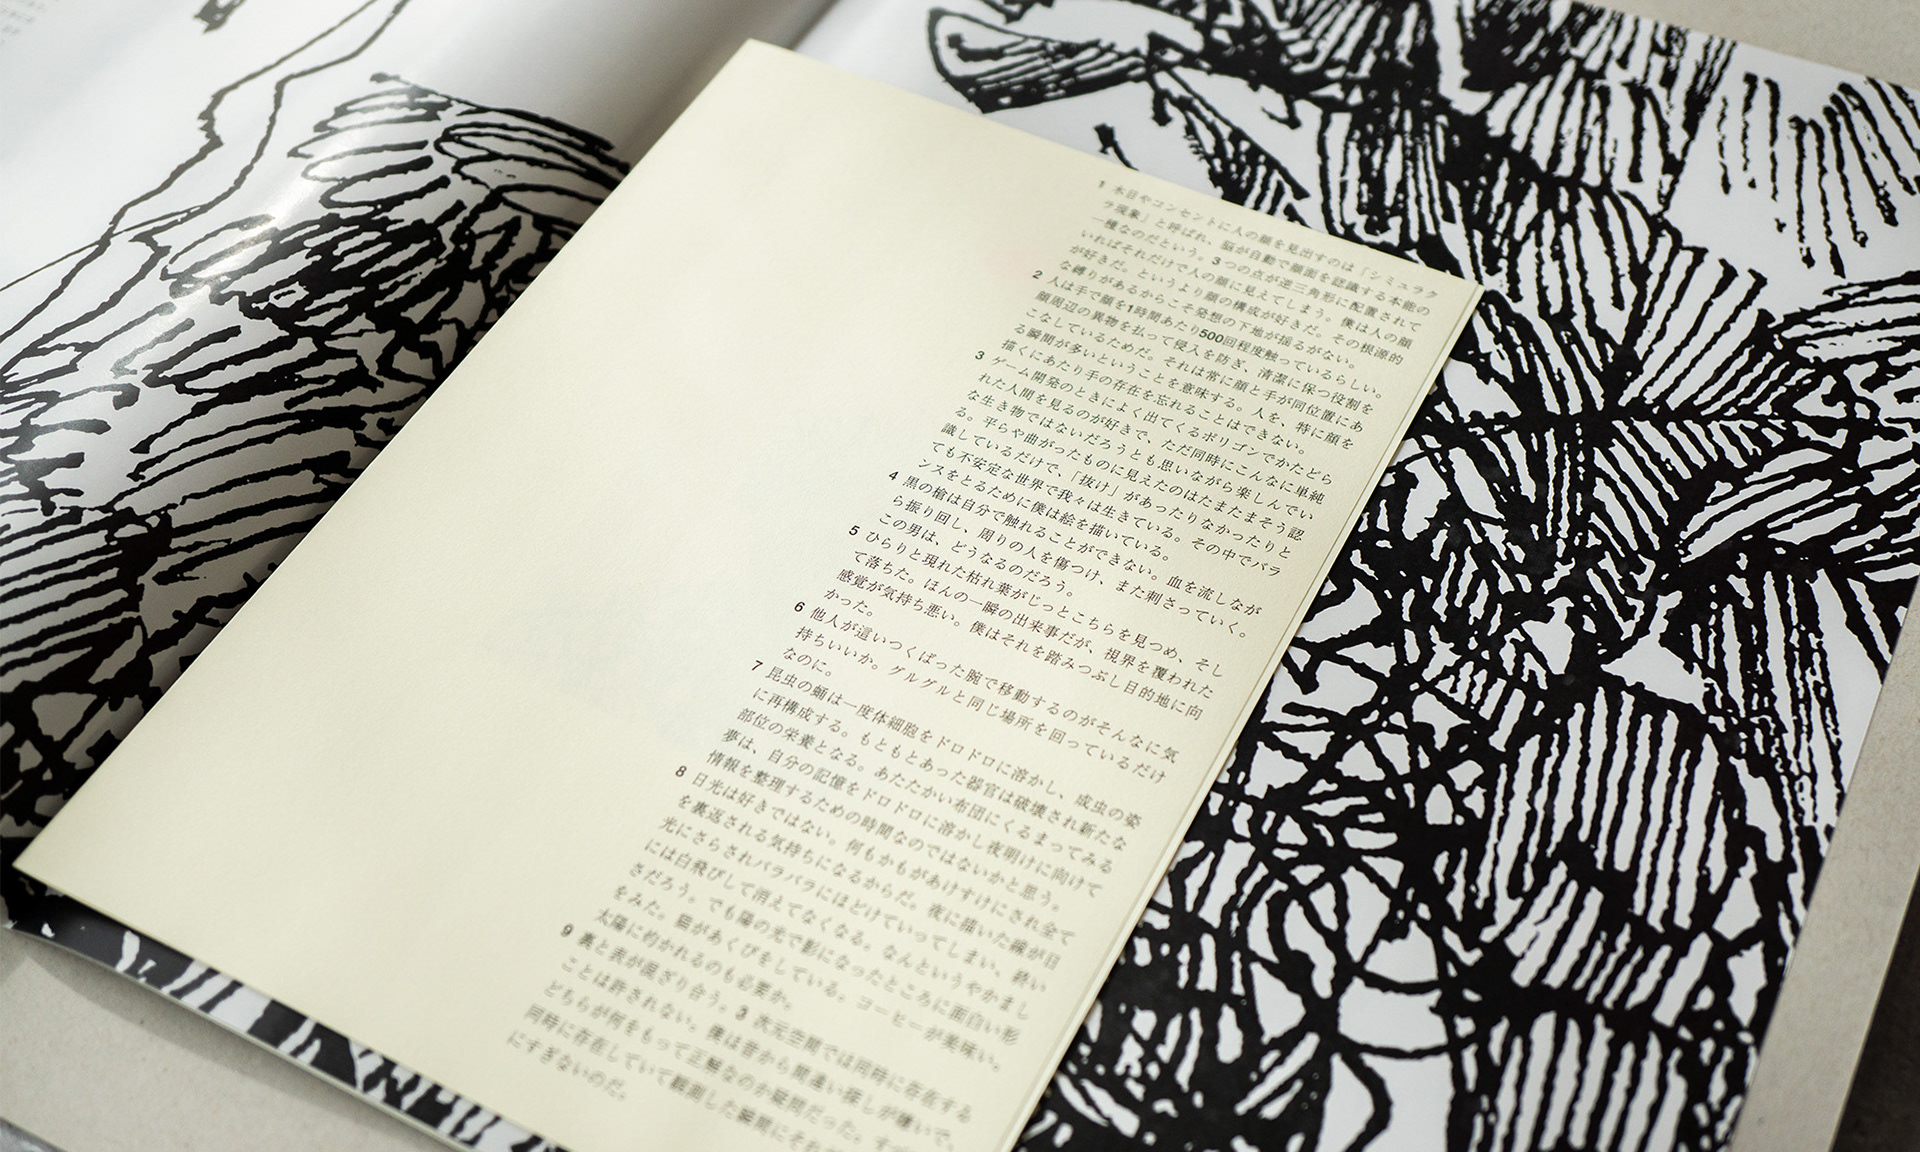 1 木目やコンセントに人の顔を見出すのは「シミュラク
ラ現象」と呼ばれ、脳が自動で顔面を認識する本能の
一種なのだという。3つの点が逆三角形に配置されて
いればそれだけで人の顔に見えてしまう。僕は人の顔
が好きだ。というより顔の構成が好きだ。その根源的
な縛りがあるからこそ発想の下地が揺るがない。
2 人は手で顔を1時間あたり500回程度触っているらしい。
顔周辺の異物を払って侵入を防ぎ、清潔に保つ役割を
こなしているためだ。それは常に顔と手が同位置にあ
る瞬間が多いということを意味する。人を、特に顔を
描くにあたり手の存在を忘れることはできない。
3 ゲーム開発のときによく出てくるポリゴンでかたどら
れた人間を見るのが好きで、ただ同時にこんなに単純
な生き物ではないだろうとも思いながら楽しんでい
る。平らや曲がったものに見えたのはたまたまそう認
識しているだけで、「抜け」があったりなかったりと
ても不安定な世界で我々は生きている。その中でバラ
ンスをとるために僕は絵を描いている。
4 黒の槍は自分で触れることができない。血を流しなが
ら振り回し、周りの人を傷つけ、また刺さっていく。
この男は、どうなるのだろう。
5 ひらりと現れた枯れ葉がじっとこちらを見つめ、そし
て落ちた。ほんの一瞬の出来事だが、視界を覆われた
感覚が気持ち悪い。僕はそれを踏みつぶし目的地に向
かった。
6 他人が這いつくばった腕で移動するのがそんなに気
持ちいいか。グルグルと同じ場所を回っているだけ
なのに。
7 昆虫の蛹は一度体細胞をドロドロに溶かし、成虫の姿
に再構成する。もともとあった器官は破壊され新たな
部位の栄養となる。あたたかい布団にくるまってみる
夢は、自分の記憶をドロドロに溶かし夜明けに向けて
情報を整理するための時間なのではないかと思う。
8 日光は好きではない。何もかもがあけすけにされ全て
を裏返される気持ちになるからだ。夜に描いた線が日
光にさらされバラバラにほどけていってしまい、終い
には白飛びして消えてなくなる。なんというやかまし
さだろう。でも陽の光で影になったところに面白い形
をみた。猫があくびをしている。コーヒーが美味い。
太陽に灼かれるのも必要か。
9 裏と表が混ざり合う。3次元空間では同時に存在する
ことは許されない。僕は昔から間違い探しが嫌いで、
どちらが何をもって正解なのか疑問だった。すべ
同時に存在していて観測した瞬間にそれ
にすぎないのだ。